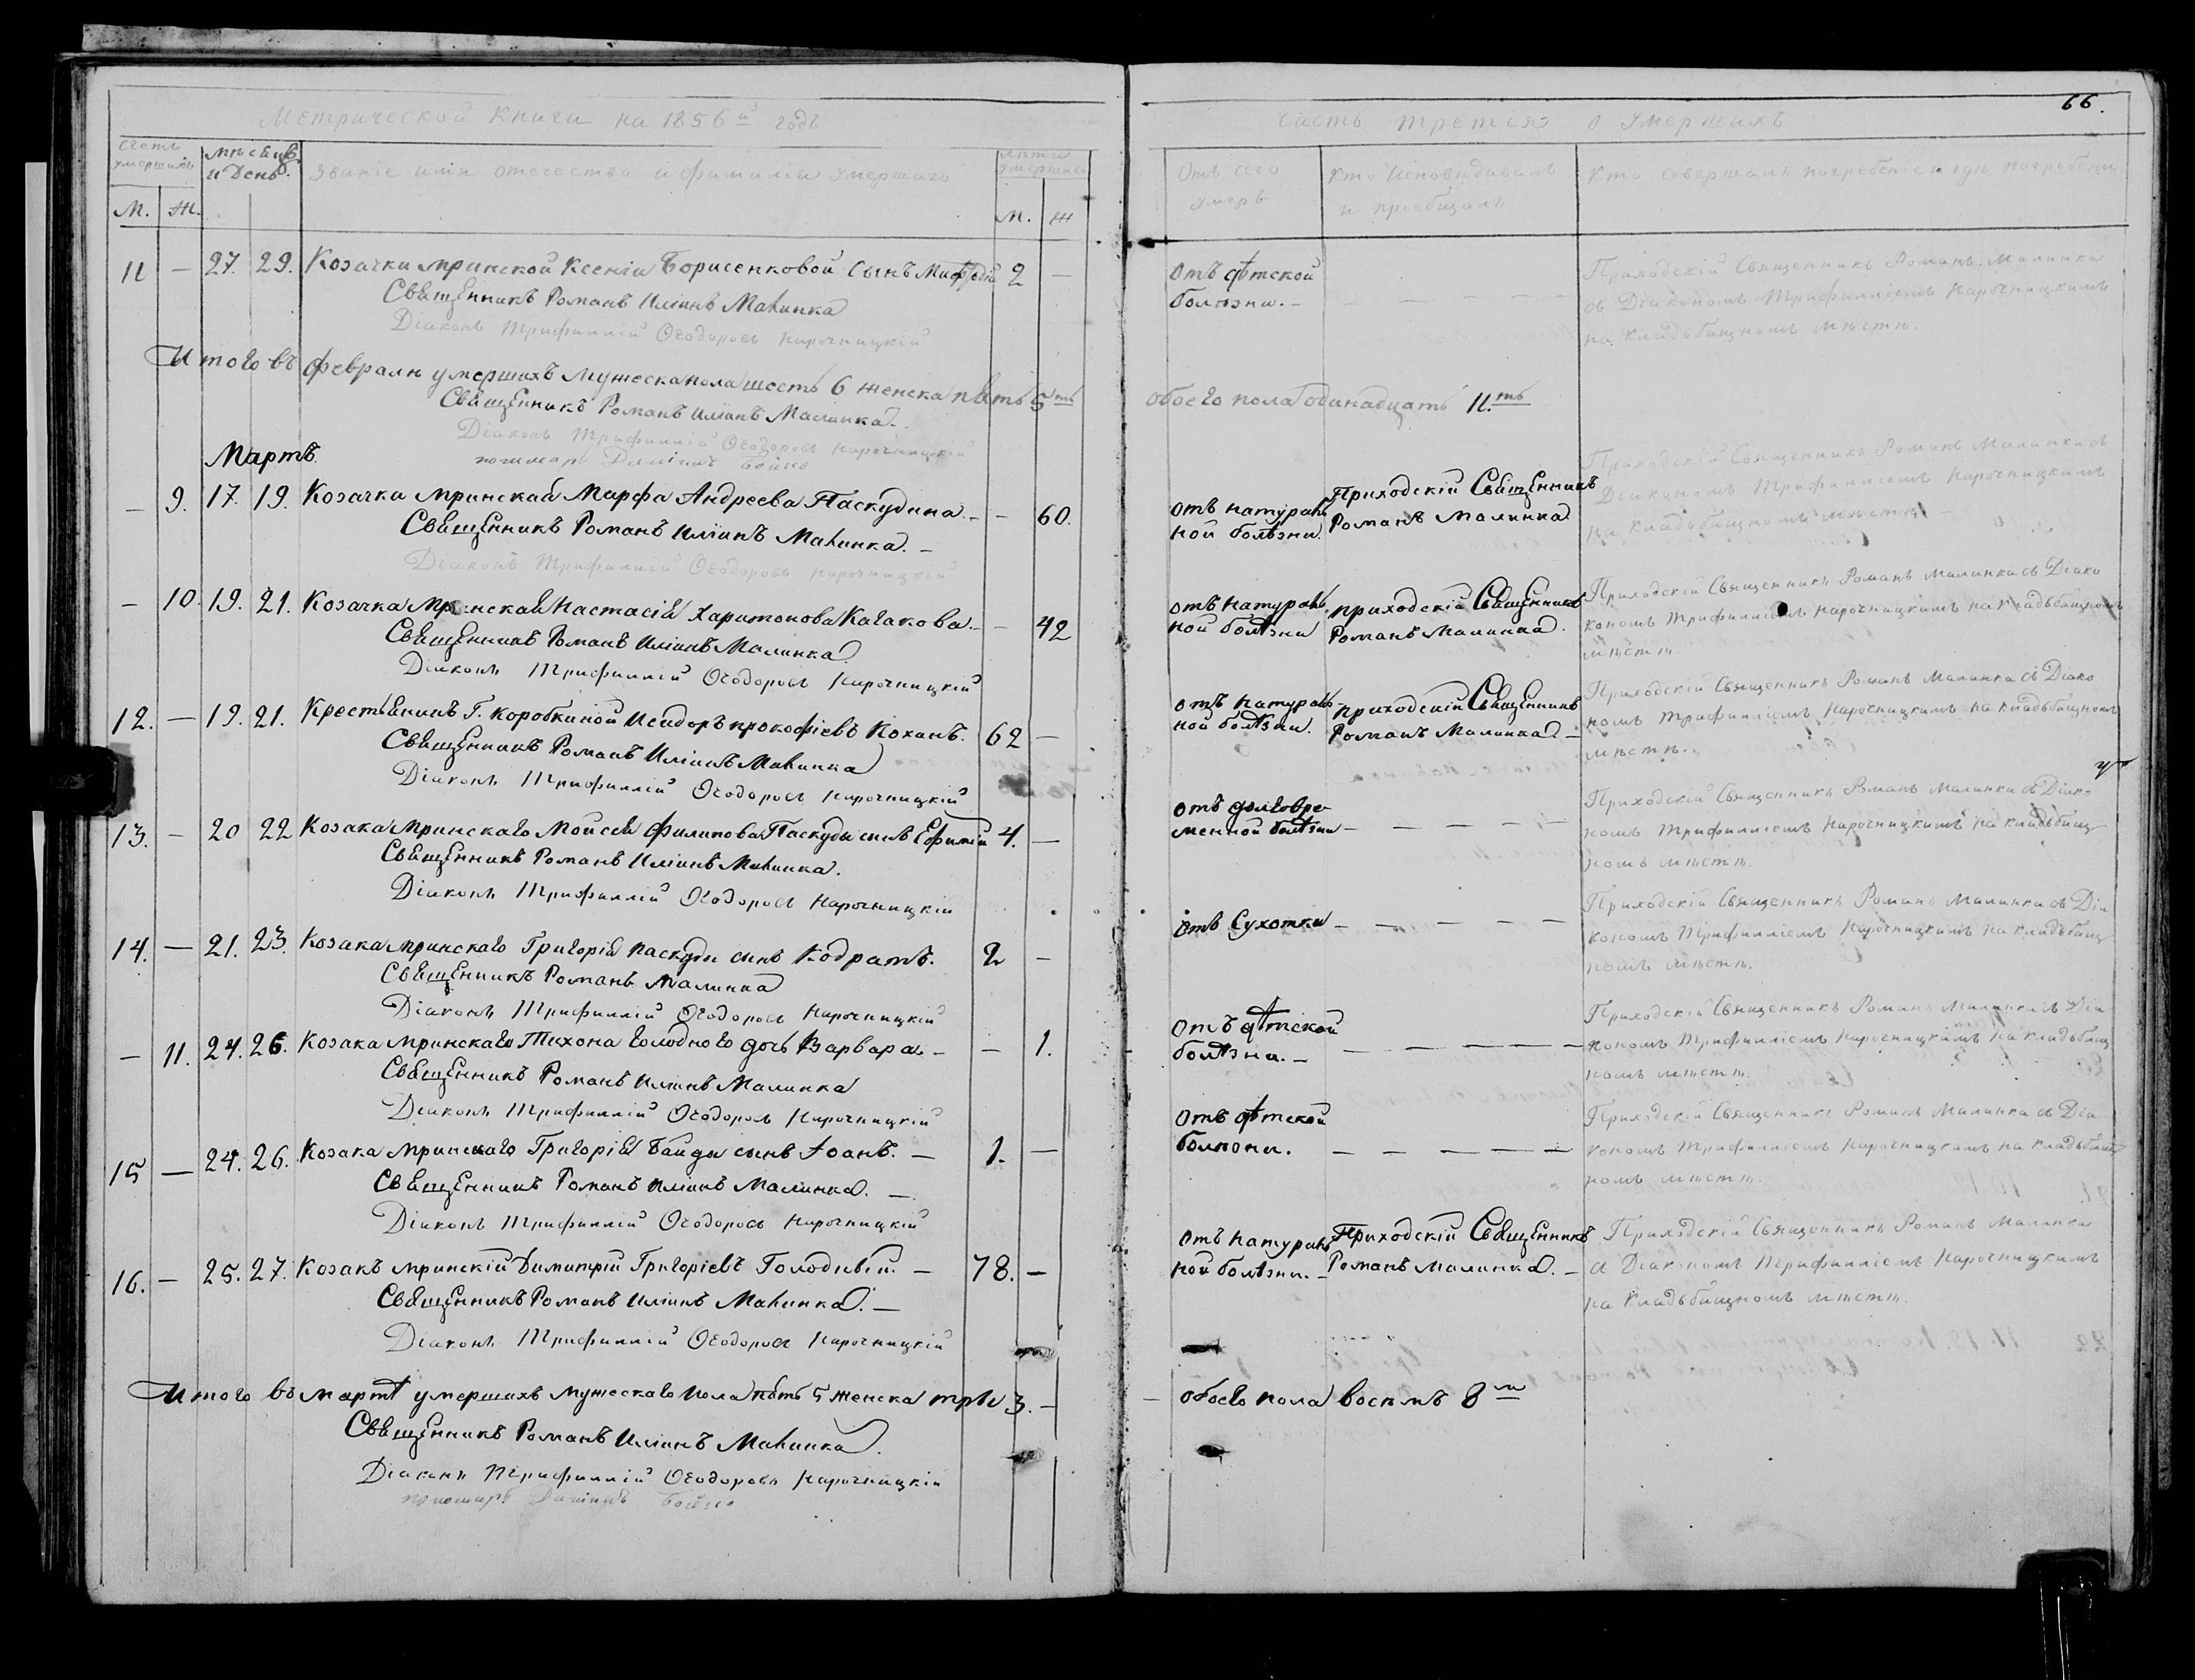 Метрической Книги на 1856й годъ
Счетъ умершихъ
мѣсяцъ и День
Званіе имя отечество и фамилія умершаго
лѣта умершаго
М. Ж. М. Ж
11 — 27. 29. Козачки мринской Ксеніи Борисенковой сынъ Мифодій 2 —
Священникъ Романъ Иліинъ Малинка
Діаконъ Трифиллій Ѳеодоровъ Нарочницкій
Итого въ февралѣ умершихъ мужеска пола шесть 6 женска пять 5ть
Священникъ Романъ Иліинъ Малинка.
Діаконъ Трифиллій Ѳеодоровъ Нарочницкій
пономарь Бойко
Мартъ.
— 9. 17. 19. Козачка мринская Марфа Андреева Паскудина. — — 60.
Священникъ Романъ Иліинъ Малинка. —
Діаконъ Трифиллій Ѳеодоровъ Нарочницкій
— 10. 19. 21. Козачка Мринская Настасія Харитонова Качакова. — — 42
Священникъ Романъ Иліинъ Малинка.
Діаконъ Трифиллій Ѳеодоровъ Нарочницкій
12. — 19. 21. Крестьянинъ Г. Коробкиной Исидоръ Прокофіевъ Коханъ. 62 —
Священникъ Романъ Иліинъ Малинка
Діаконъ Трифиллій Ѳеодоровъ Нарочницкій
13. — 20 22 Козака Мринскаго Моисея Филипова Паскуды сынъ Ефимій 4. —
Священникъ Романъ Иліинъ Малинка.
Діаконъ Трифиллій Ѳеодоровъ Нарочницкій
14. — 21. 23. Козака мринскаго Григорія Паскуды сынъ Кодратъ. 2 —
Священникъ Романъ Малинка
Діаконъ Трифиллій Ѳеодоровъ Нарочницкій
— 11. 24. 26. Козака мринскаго Тихона Голодного дочь Варвара — — 1.
Священникъ Романъ Иліинъ Малинка
Діаконъ Трифиллій Ѳеодоровъ Нарочницкій
15 — 24. 26. Козака мринскаго Григорія Байды сынъ Іоанъ. — 1. —
Священникъ Романъ Иліинъ Малинка. —
Діаконъ Трифиллій Ѳеодоровъ Нарочницкій
16. — 25. 27. Козакъ мринскій Димитрій Григоріевъ Голодный. — 78. —
Священникъ Романъ Иліинъ Малинка. —
Діаконъ Трифиллій Ѳеодоровъ Нарочницкій
Итого въ мартѣ умершихъ мужескаго пола пять 5 женска три 3. —
Священникъ Романъ Иліинъ Малинка.
Діаконъ Трифиллій Ѳеодоровъ Нарочницкій
пономарь Бойко
66.
Часть третія о умершихъ
Отъ чего умеръ
Кто Исповѣдивалъ и пріобщалъ
Кто совершалъ погребеніе и гдѣ погребены
отъ дѣтской
болѣзни. —
Приходскій Священникъ Романъ Малинка
съ Діакономъ Трифилліемъ Нарочницкимъ
на кладьбищномъ мѣстѣ.
обоего пола одинадцать 11.ть
отъ натураль
ной болѣзни.
Приходскій Священникъ
Романъ Малинка
Приходскій Священникъ Романъ Малинка съ
Діакономъ Трифилліемъ Нарочницкимъ
на кладьбищномъ мѣстѣ.
отъ натураль
ной болѣзни
приходскій Священникъ
Романъ Малинка.
Приходскій Священникъ Романъ Малинка съ Діако
кономъ Трифилліемъ Нарочницкимъ на кладьбищномъ
мѣстѣ.
отъ натураль
ной болѣзни.
приходскій Священникъ
Романъ Малинка. —
Приходскій Священникъ Романъ Малинка съ Діако
номъ Трифилліемъ Нарочницкимъ на кладьбищномъ
мѣстѣ.
отъ долговре-
менной болѣзни —
Приходскій Священникъ Романъ Малинка съ Діако
номъ Трифилліемъ Нарочницкимъ на кладьбищ
номъ мѣстѣ.
отъ Сухотки —
Приходскій Священникъ Романъ Малинка съ Діа
кономъ Трифилліемъ Нарочницкимъ на кладьбищ
номъ мѣстѣ.
отъ дѣтской
болѣзни. —
Приходскій Священникъ Романъ Малинка съ Діа
кономъ Трифилліемъ Нарочницкимъ на кладьбищ
номъ мѣстѣ.
отъ дѣтской
болѣзни.
Приходскій Священникъ Романъ Малинка съ Діа
кономъ Трифилліемъ Нарочницкимъ на кладьбищ
номъ мѣстѣ.
отъ натураль
ной болѣзни. —
Приходскій Священникъ
Романъ Малинка. —
Приходскій Священникъ Романъ Малинка
съ Діакономъ Трифилліемъ Нарочницкимъ
на кладьбищномъ мѣстѣ.
— обоего пола восемъ 8м